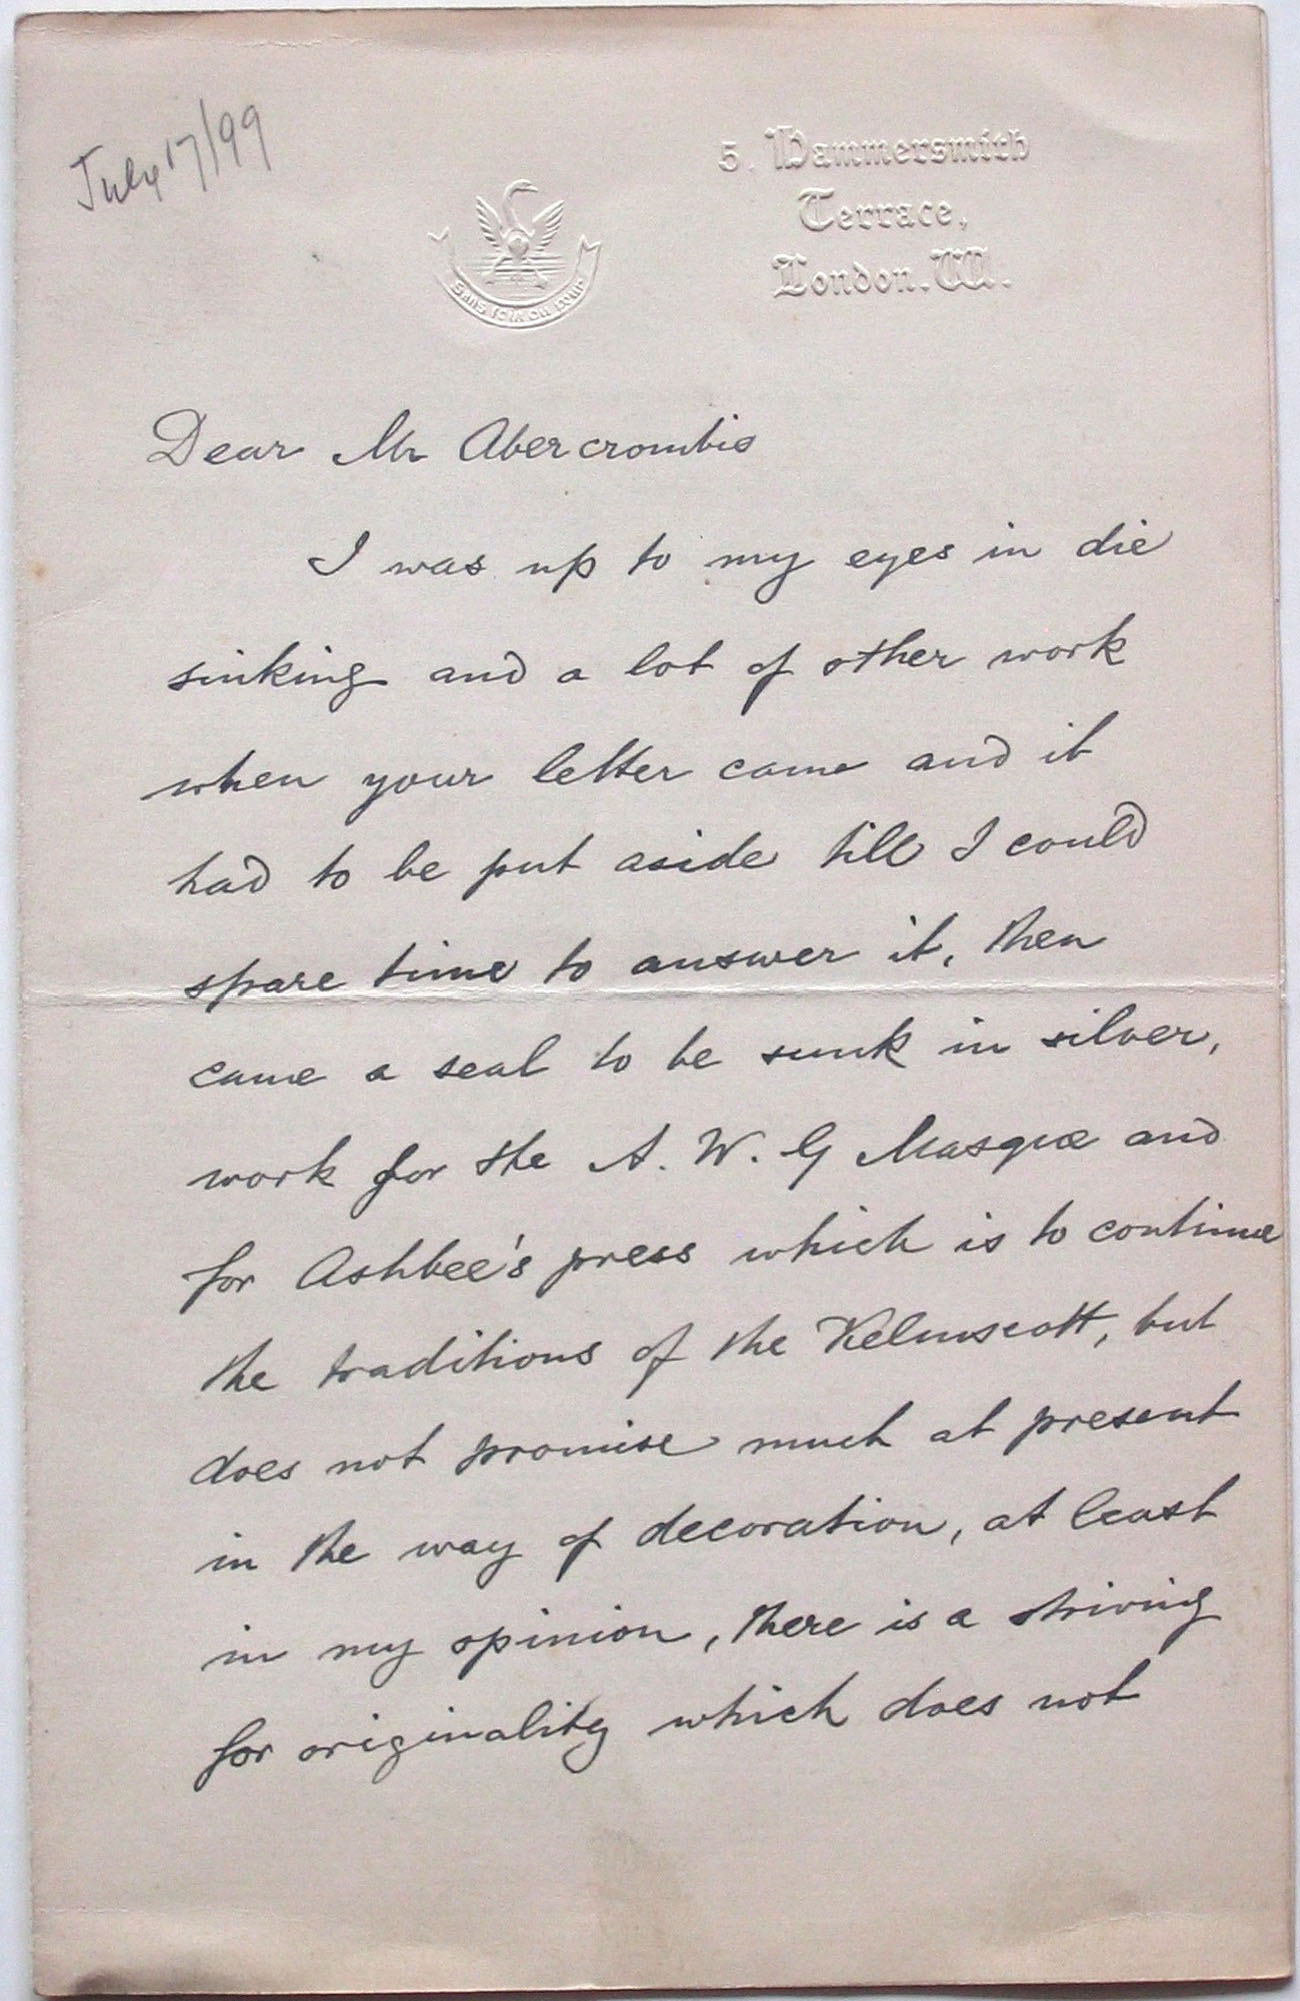 July 17/99
5. Hammersmith
Terrace,
London. W.
Dear Mr Abercrombie
I was up to my eyes in die
sinking and a lot of other work
when your letter came and it
had to be put aside till I could
spare time to answer it, then
came a seal to be sunk in silver,
work for the A. W. G Masque and
for Ashbee's press which is to continue
the traditions of the Kelmscott, but
does not promise much at present
in the way of decoration, at least
in my opinion, there is a striving
for originality which does not